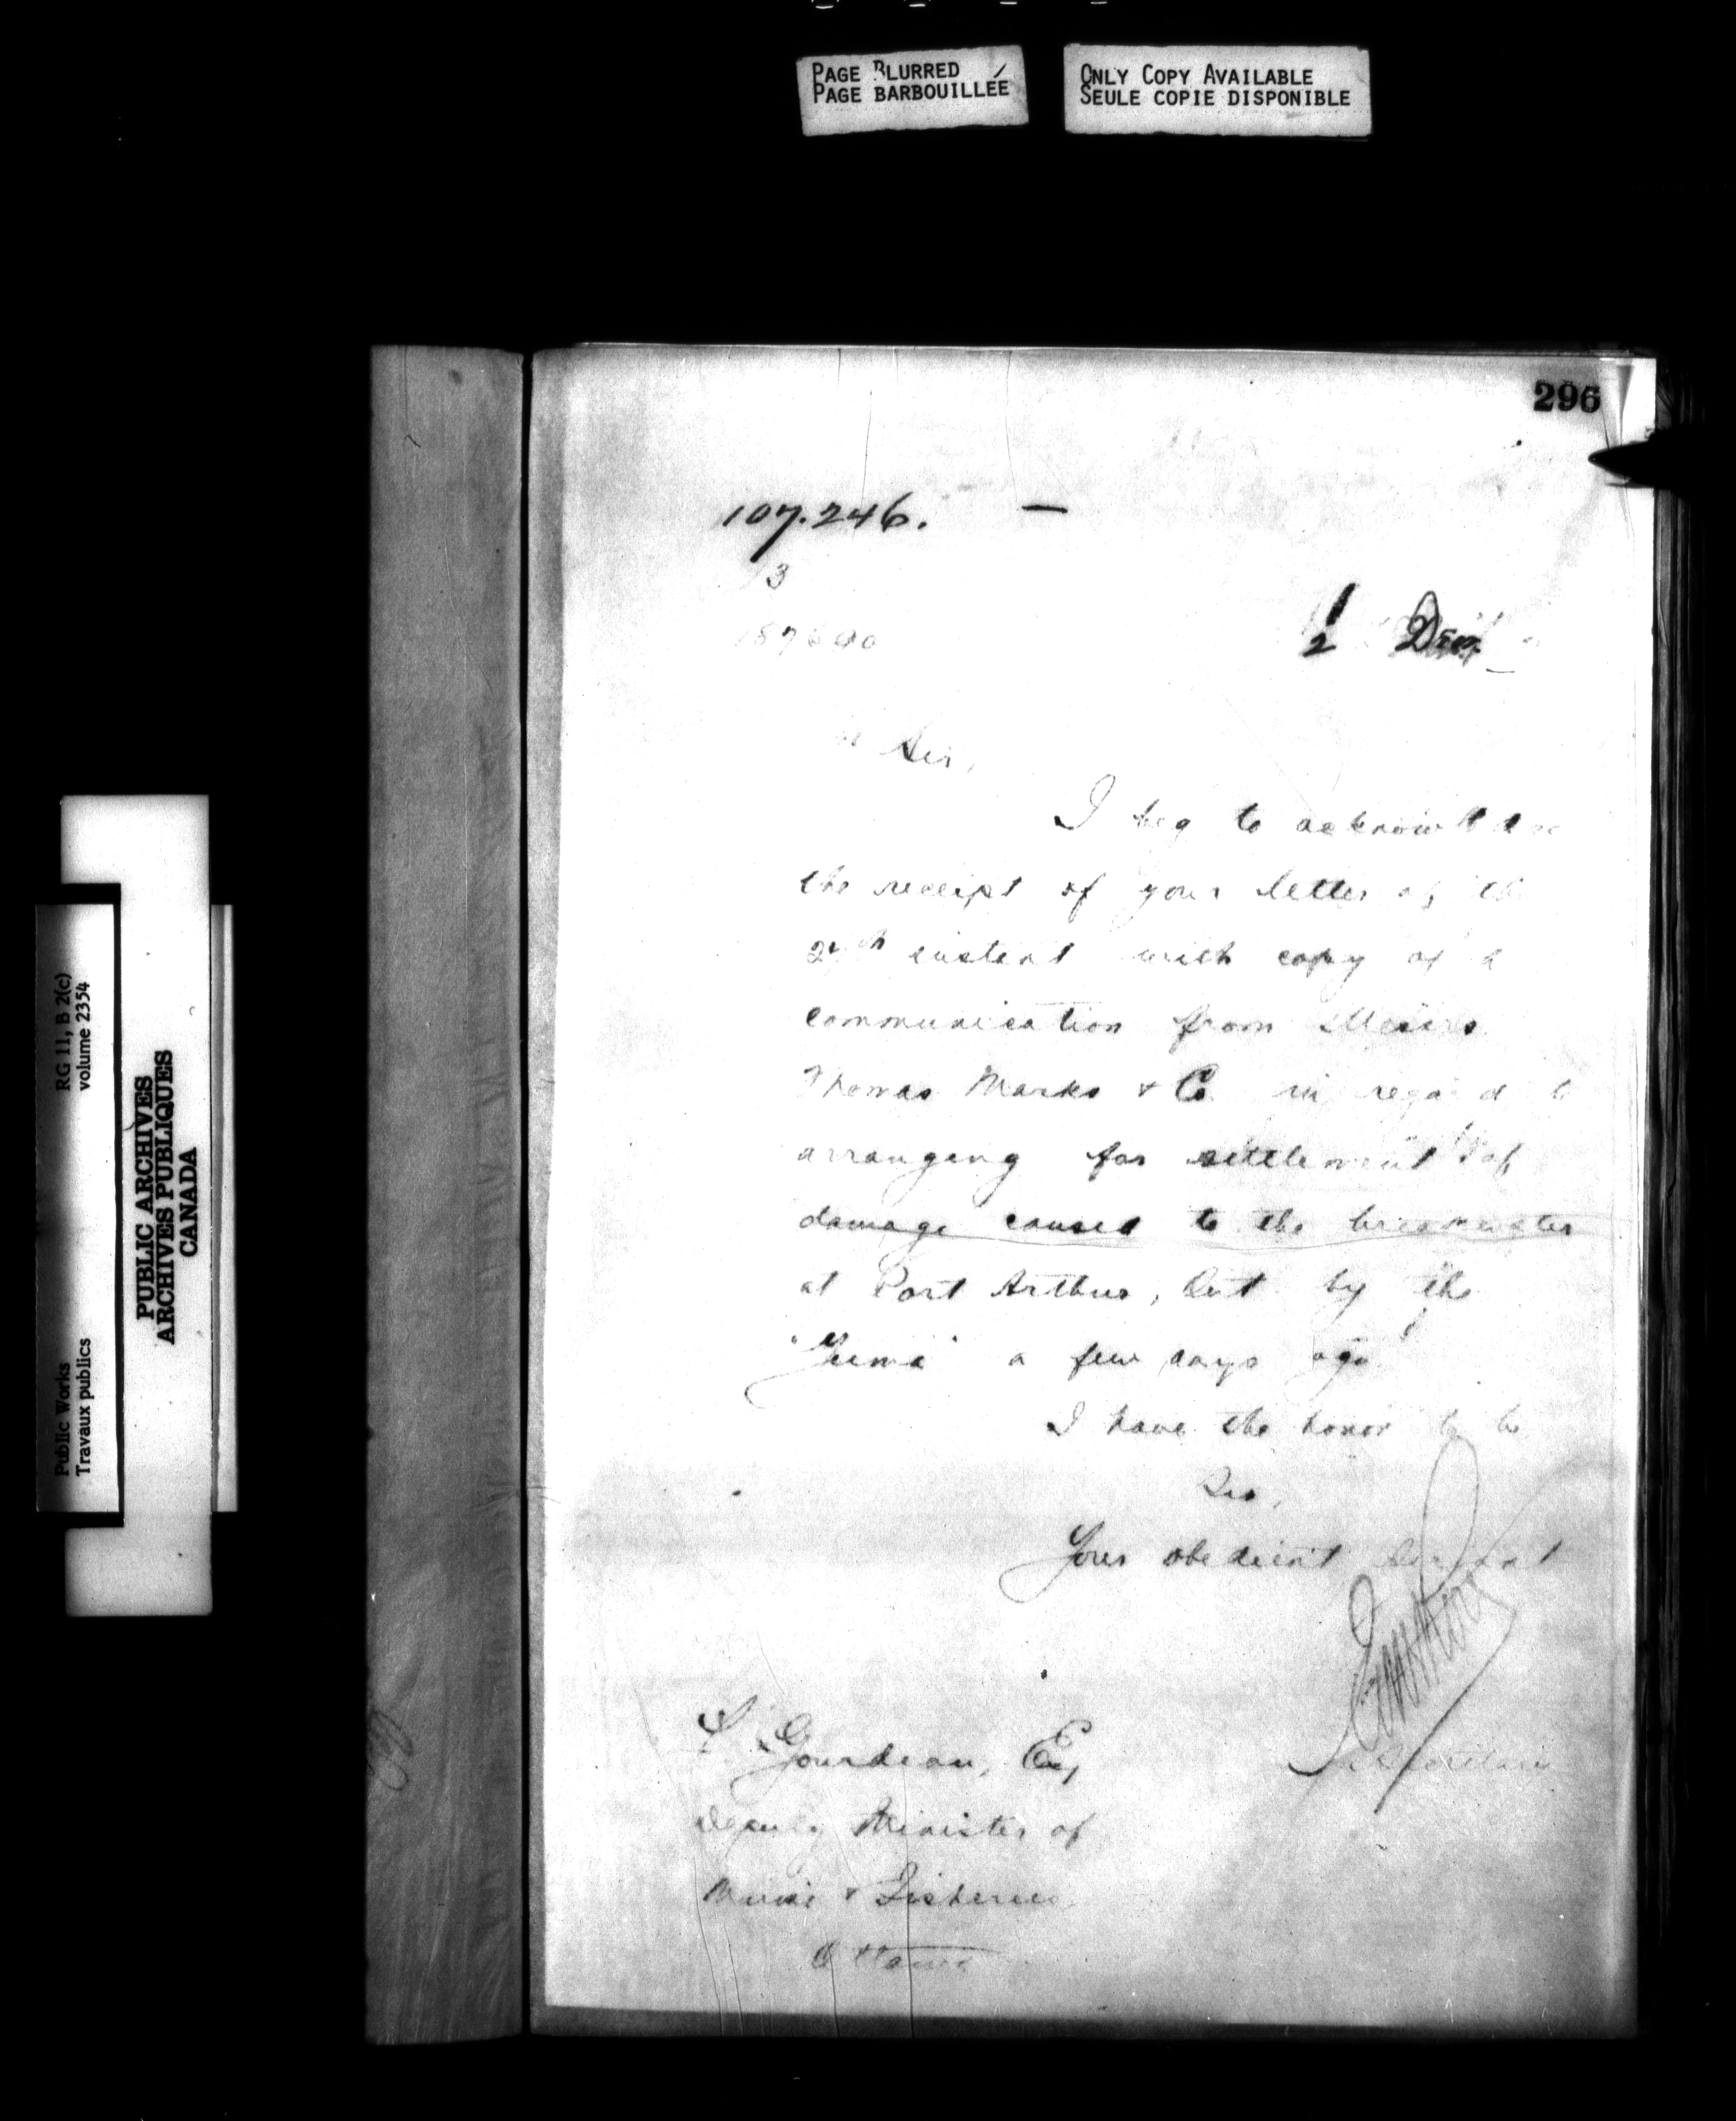 PAGE BLURRED
PAGE BARBOUILLÉE
ONLY COPY AVAILABLE
SEULE COPIE DISPONIBLE
296
107.246.
3
2 Dec.
Sir,
I beg to acknowledge
the receipt of your letter of the
27th instant with copy of a
communication from Messrs
Thomas Marks & Co. in regard to
arranging for settlement of
damage caused to the breakwater
at Port Arthur, Ont by the
"Yuma" a few days ago
I have the honor to be
Sir,
Your obedient servant
Secretary
Gourdeau, Esq
Deputy Minister of
Marine & Fisheries
Ottawa
RG 11, B 2(c)
volume 2354
Public Works
Travaux publics
PUBLIC ARCHIVES
ARCHIVES PUBLIQUES
CANADA